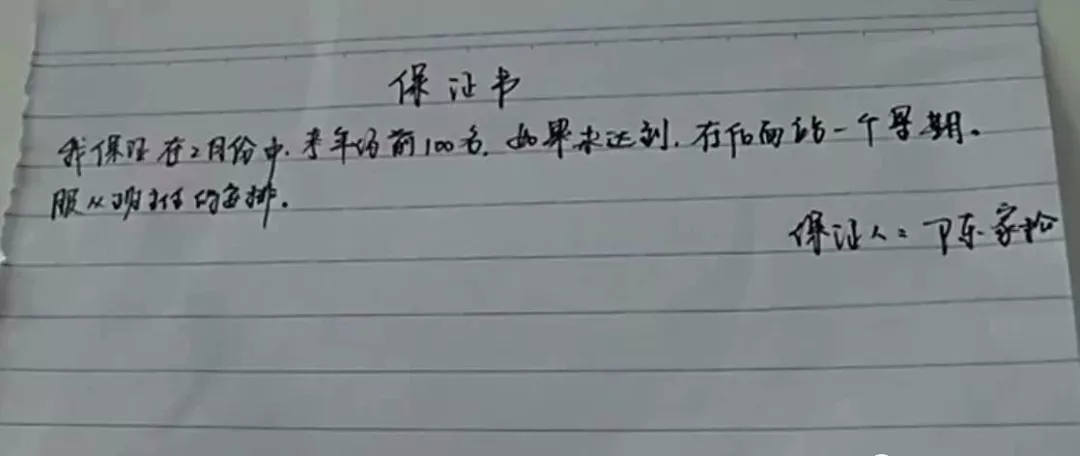 保证书
我保证在2月份中.考年级前100名.如果未达到.在后面站一个星期。
服从班主任的安排.
保证人：陈家松